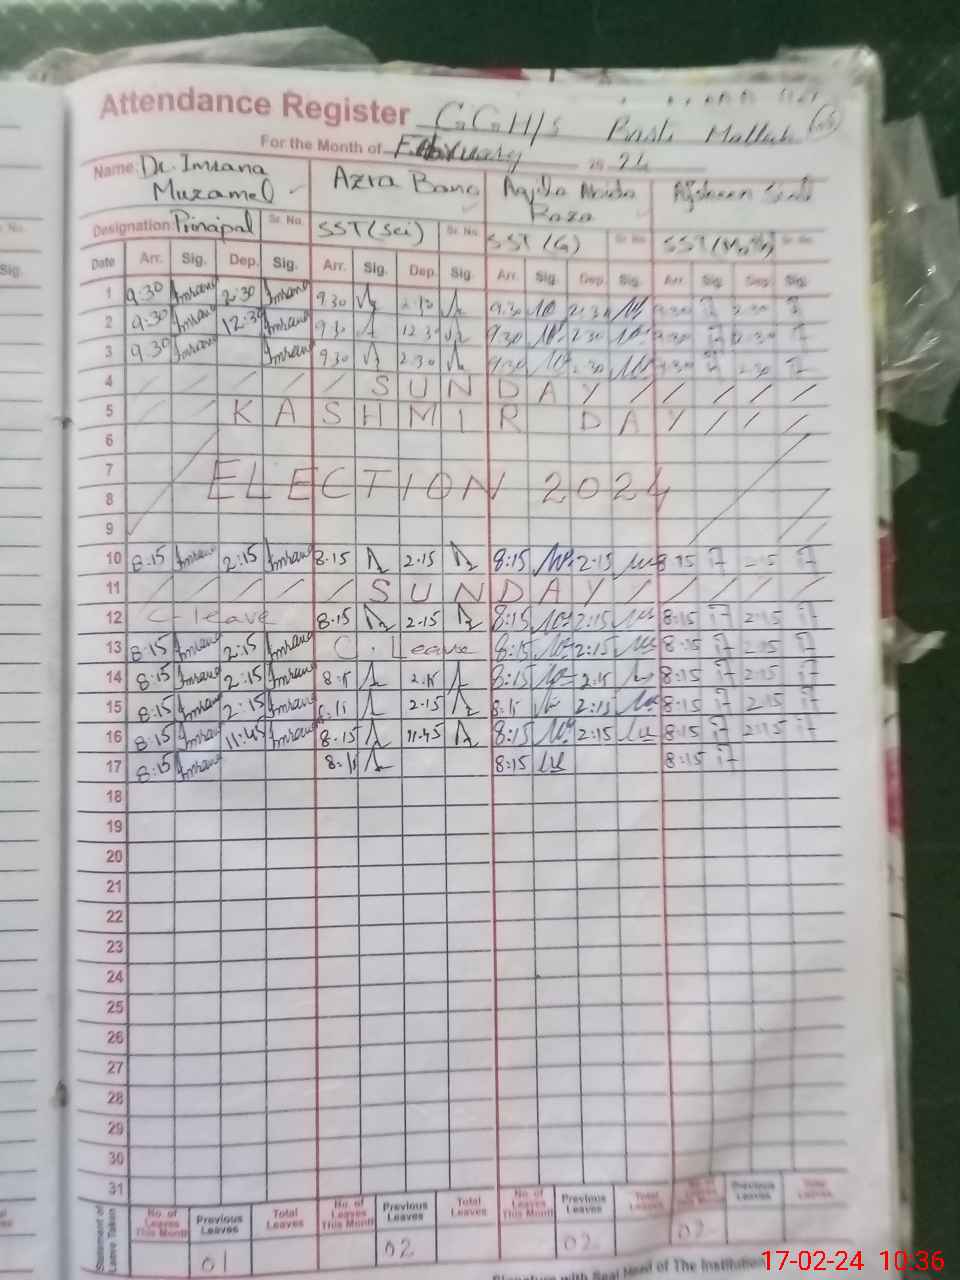 Attendance Register GGH/S Basti Mallah
For the Month of February 20 24
Name: Dr. Imrana Muzamel Azra Bano Aqila Abida Raza Afsheen
Designation Principal Sr. No. SST (Sci) Sr. No. SST (G) Sr. No. SST (Math) Sr. No.
Date Arr. Sig. Dep. Sig. Arr. Sig. Dep. Sig. Arr. Sig. Dep. Sig. Arr. Sig. Dep. Sig.
1 9:30 Imrana 2:30 Imrana 9.30 2.30 9:30 2:30 9:30 2:30
2 9:30 Imrana 12:30 Imrana 9.30 12.30 9:30 2:30 9:30 2:30
3 9:30 Imrana Imrana 9.30 2.30 9:30 2:30 9:30 2:30
4 SUNDAY
5 KASHMIR DAY
6
7 ELECTION 2024
8
9
10 8:15 Imrana 2:15 Imrana 8.15 2.15 8:15 2:15 8:15 2:15
11 SUNDAY
12 C-leave 8.15 2.15 8:15 2:15 8:15 2:15
13 8:15 Imrana 2:15 Imrana C. Leave 8:15 2:15 8:15 2:15
14 8:15 Imrana 2:15 Imrana 8:15 2.15 8:15 2:15 8:15 2:15
15 8:15 Imrana 2:15 Imrana 8:15 2.15 8:15 2:15 8:15 2:15
16 8:15 Imrana 11:45 Imrana 8.15 11.45 8:15 2:15 8:15 2:15
17 8:15 Imrana 8:15 8:15 8:15
18
19
20
21
22
23
24
25
26
27
28
29
30
31
Statement of Leave Taken No. of Leaves This Month Previous Leaves Total Leaves No. of Leaves This Month Previous Leaves Total Leaves No. of Leaves This Month Previous Leaves Total Leaves No. of Previous Leaves Total Leaves
01 02 02 02
Signature with Seal Head of The Institution
17-02-24 10:36